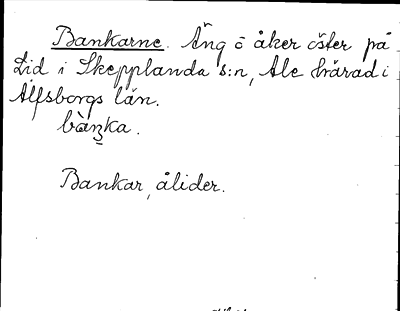 Bankarne. Äng o åker öster på
Lid i Skepplanda s:n, Ale härad i
Älfsborgs län.
Bankar, ålider.